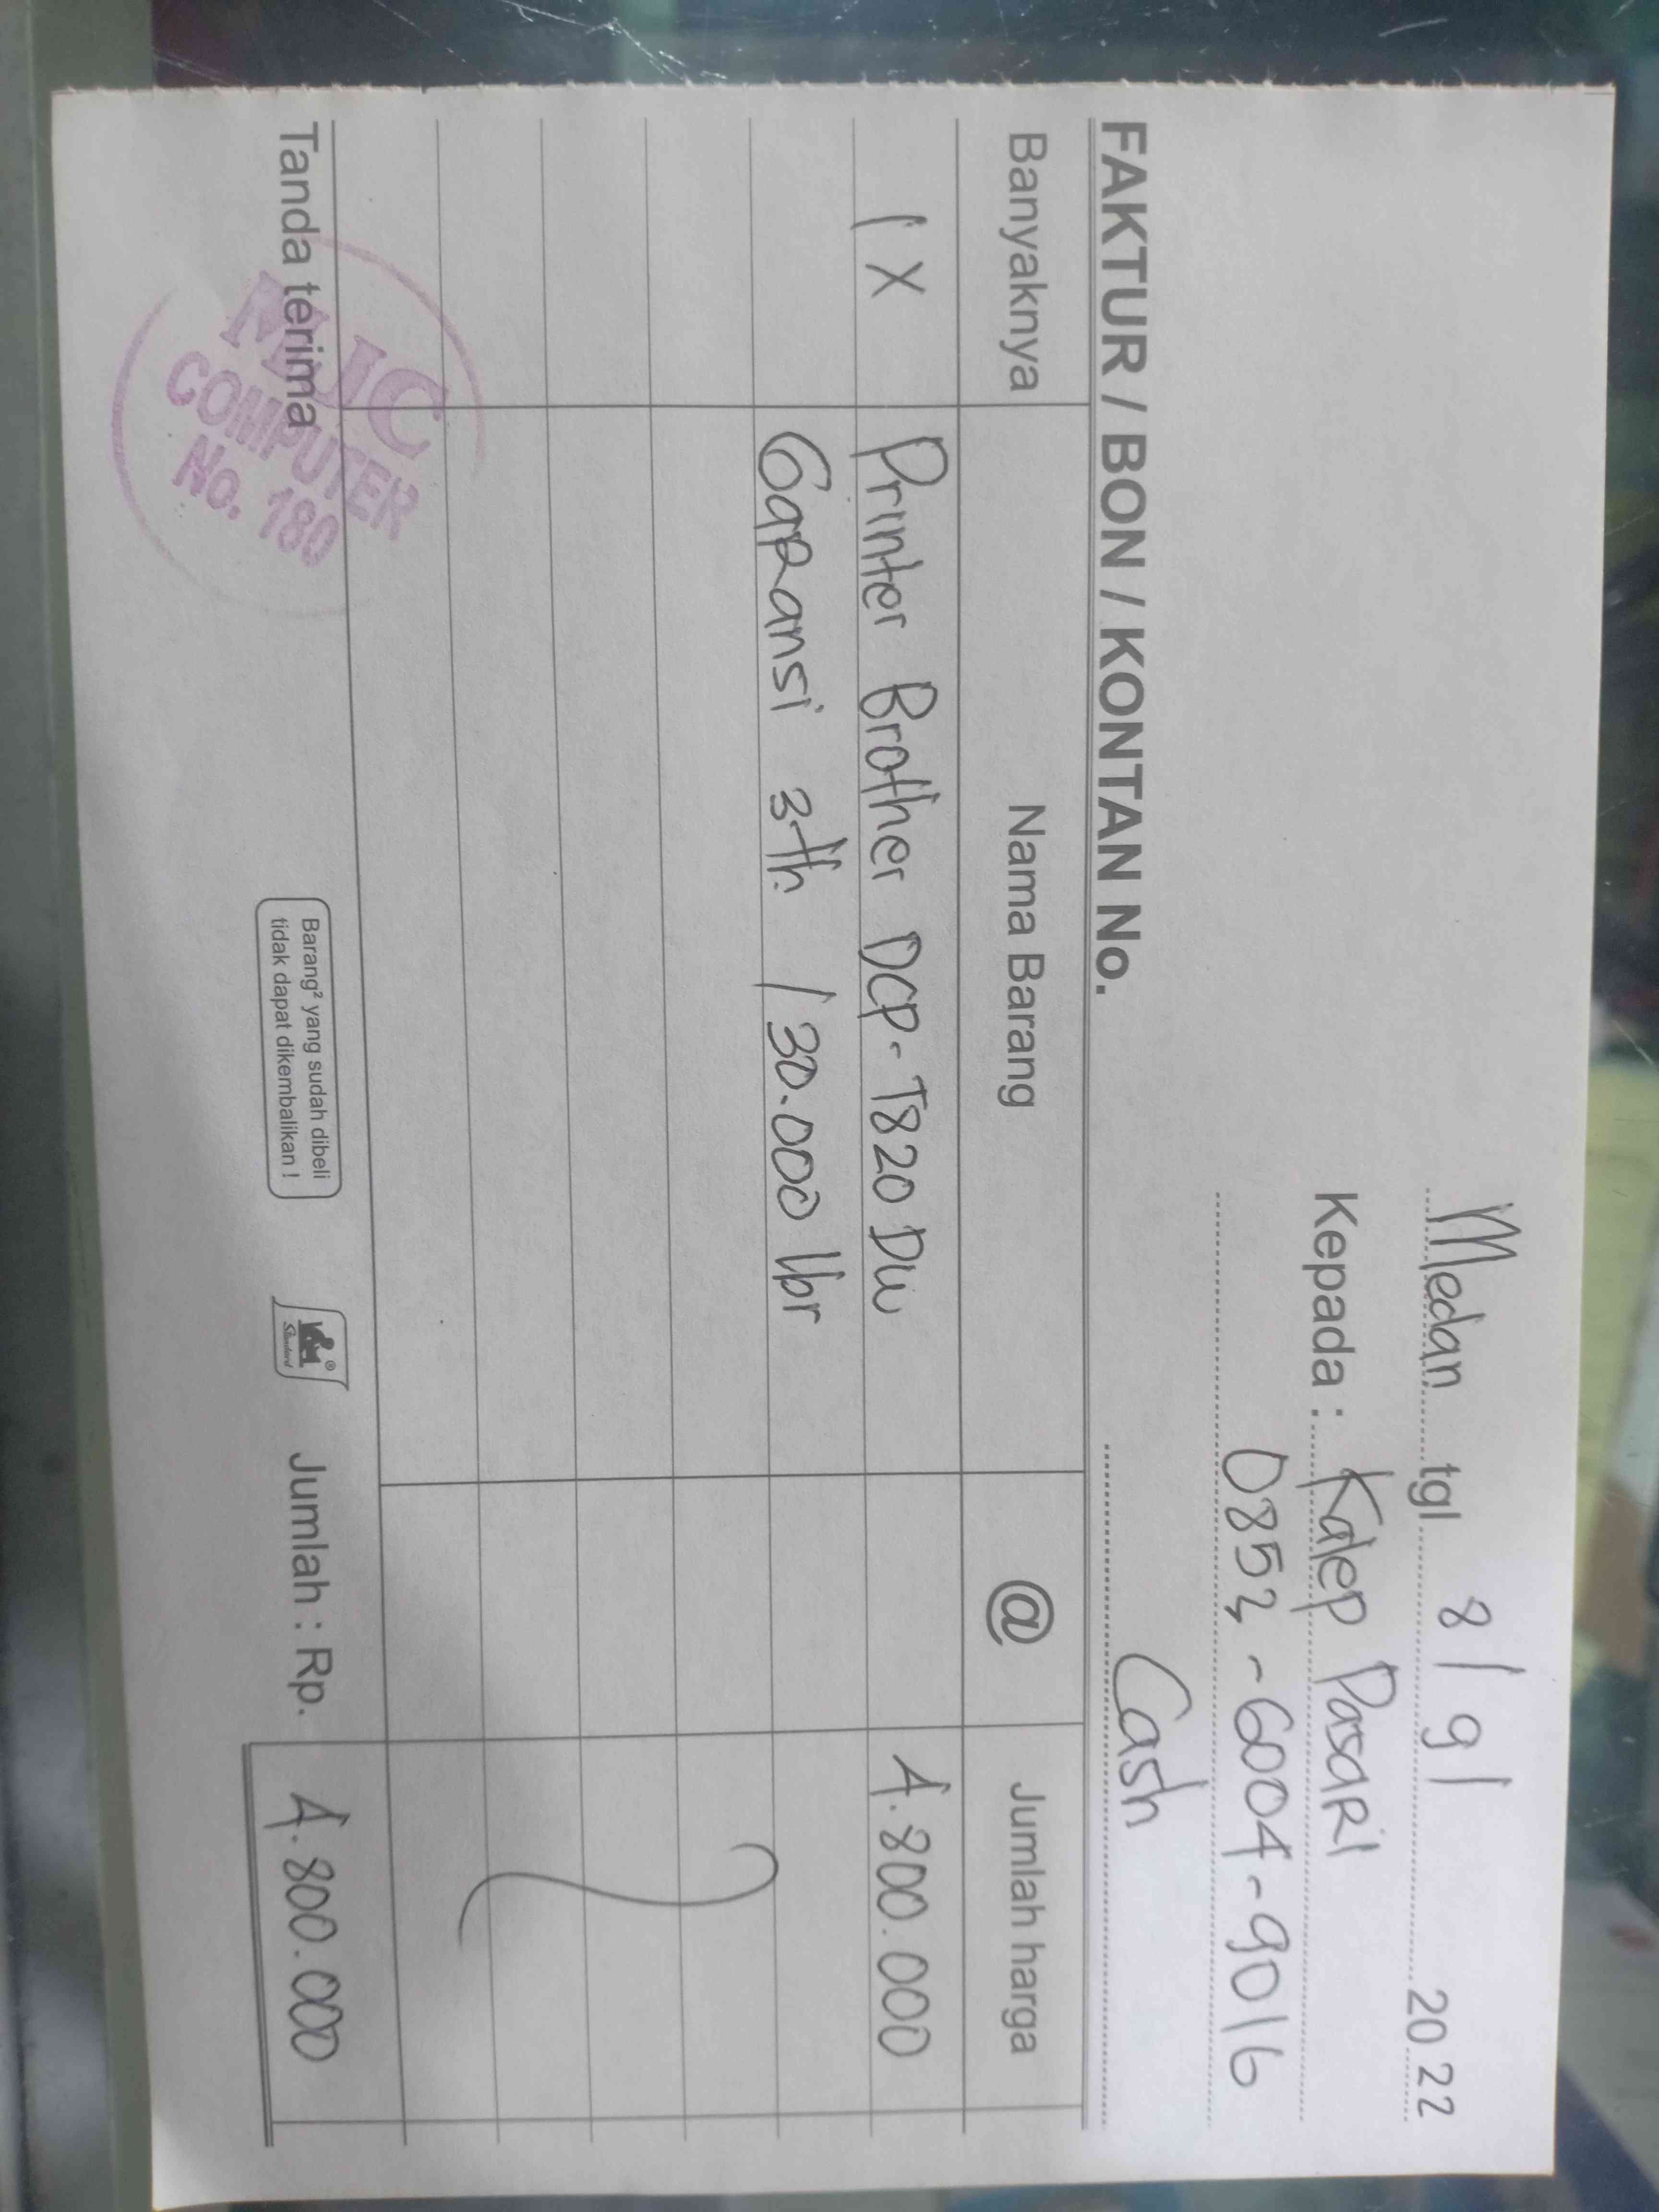 Medan tgl 8/9/ 2022
Kepada : Kalep Pasari
0852-6004-9016
FAKTUR / BON / KONTAN No. Cash
Banyaknya Nama Barang @ Jumlah harga
1 X Printer Brother DCP-T820DW 4.800.000
Garansi 3th / 30.000 lbr
Tanda terima
Barang² yang sudah dibeli
tidak dapat dikembalikan !
Standard
Jumlah : Rp. 4.800.000
MJC
COMPUTER
No. 180